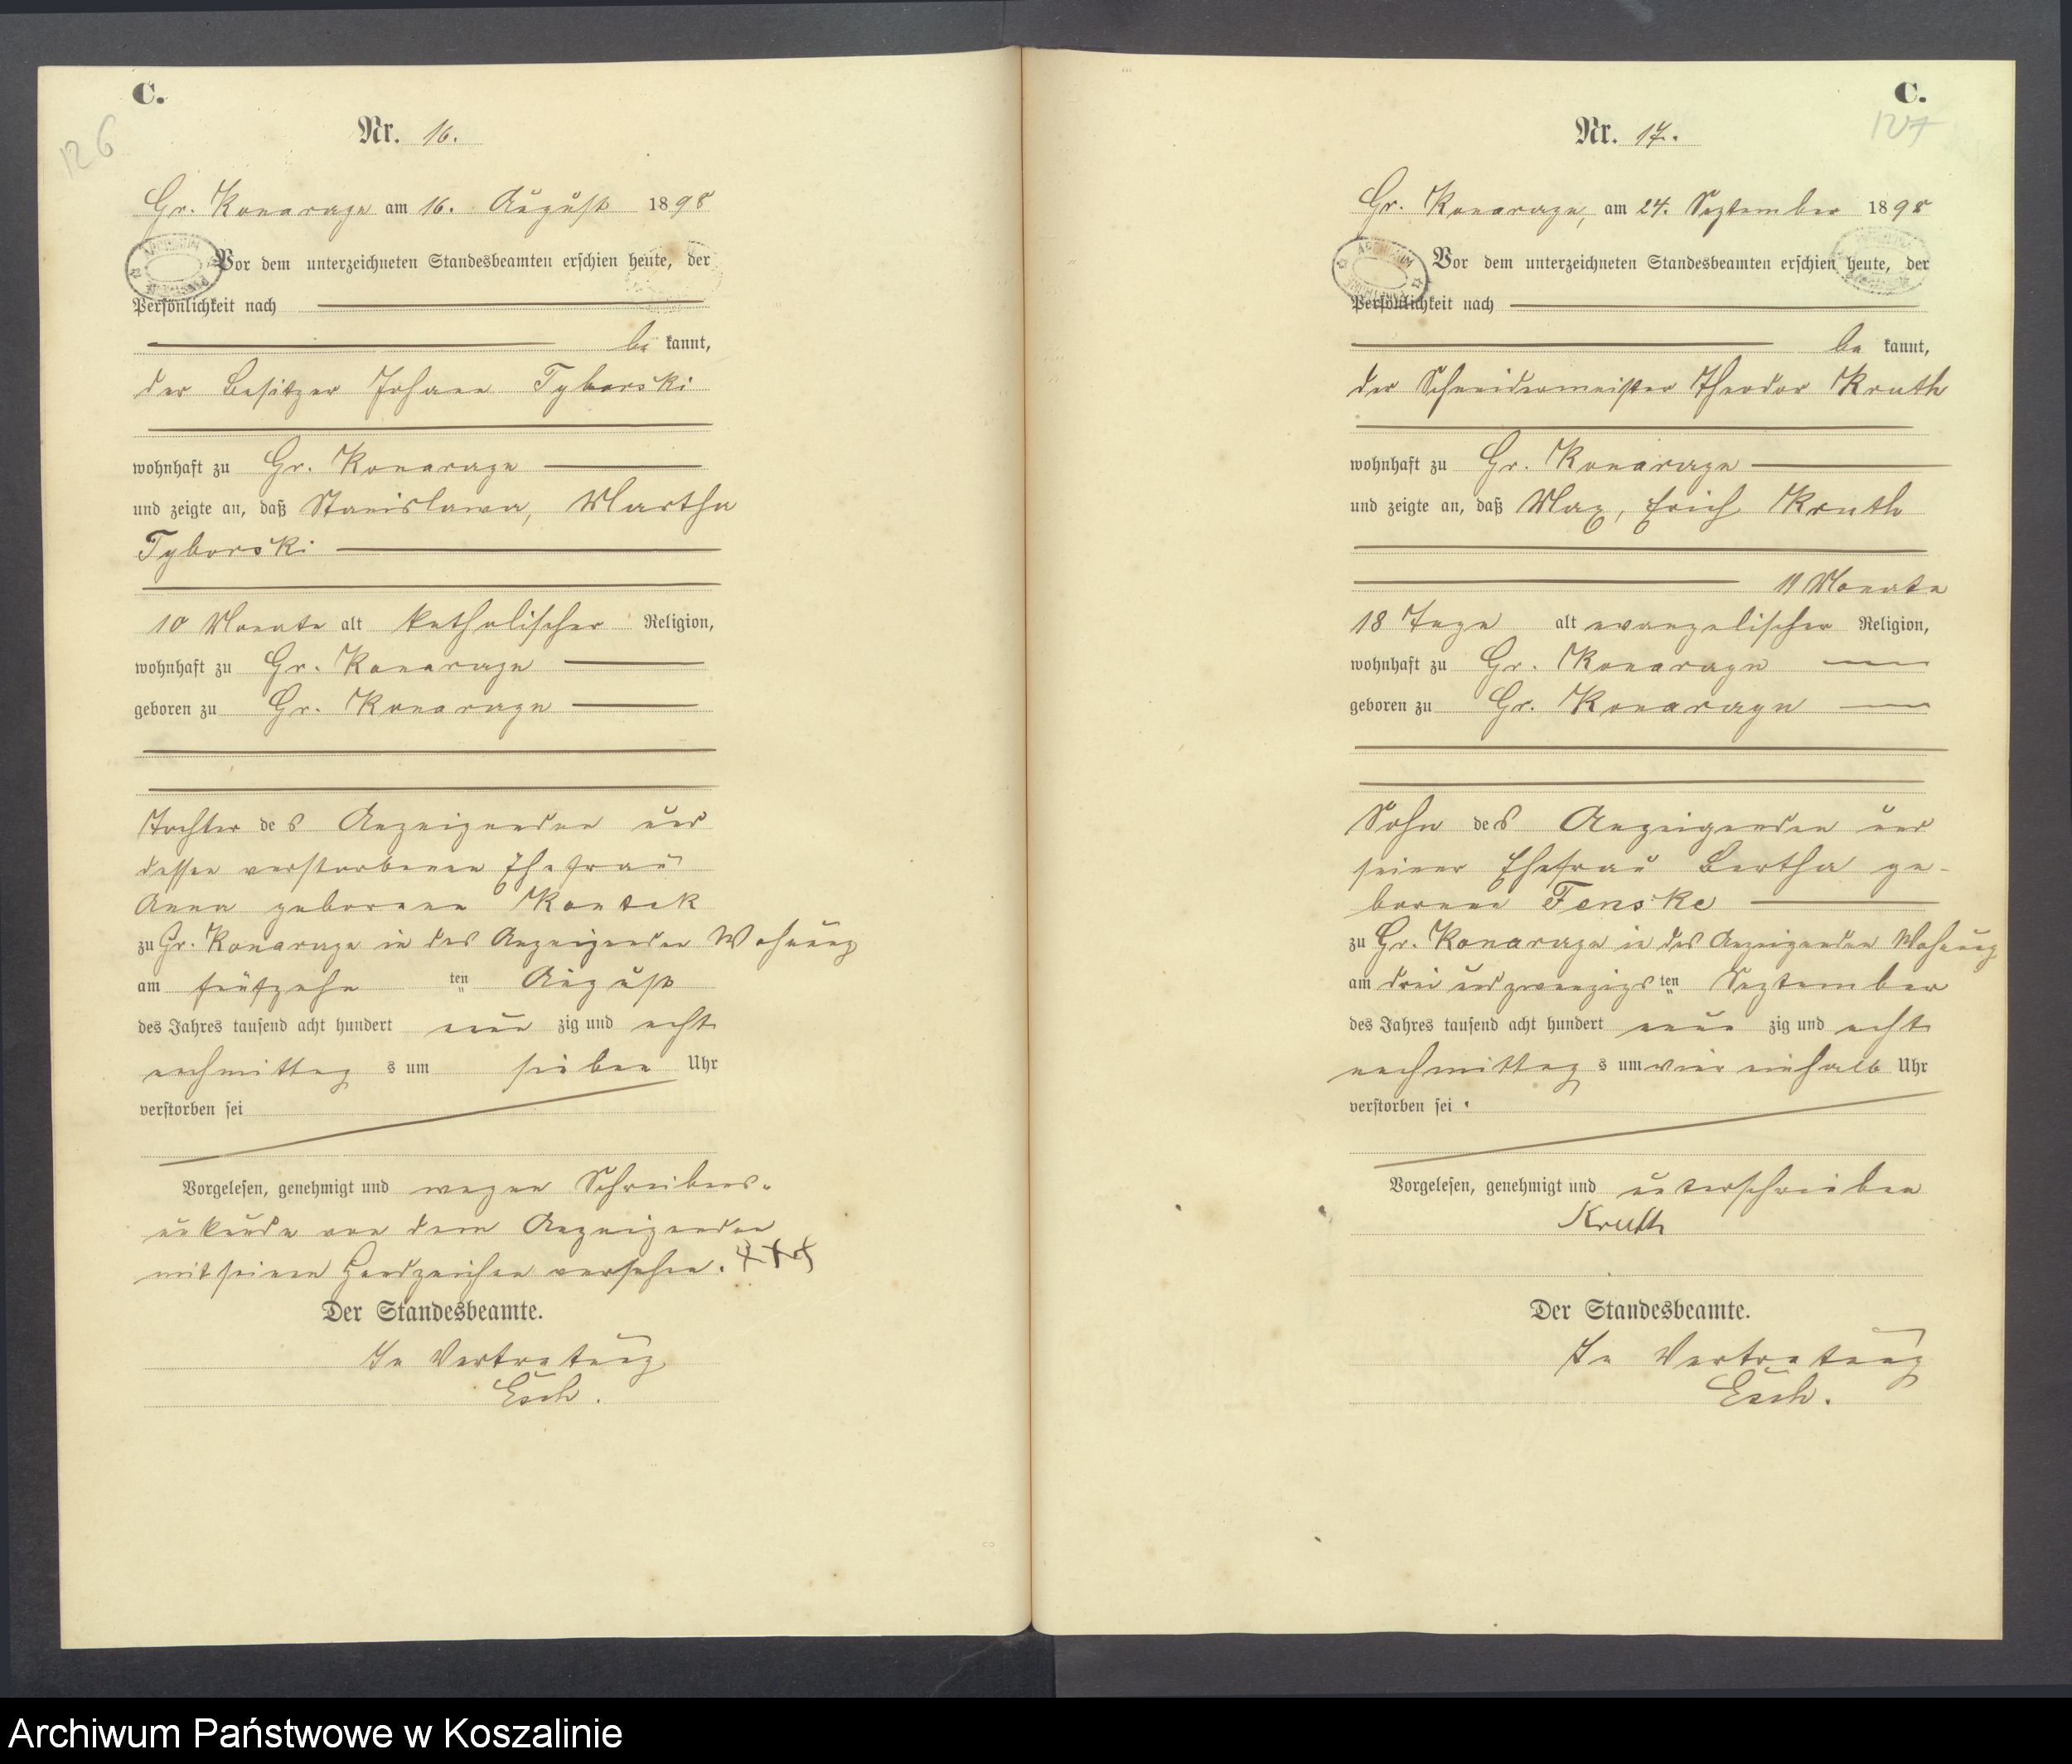 C.
126
Nr. 16.
Gr. Konarczyn am 16. August 1898
Vor dem unterzeichneten Standesbeamten erschien heute, der
Persönlichkeit nach
be kannt,
der Besitzer Johann Tyborski
wohnhaft zu Gr. Konarczyn
und zeigte an, daß Stanislawa, Martha
Tyborski
10 Monate alt katholischer Religion,
wohnhaft zu Gr. Konarczyn
geboren zu Gr. Konarczyn
Tochter des Anzeigenden und
dessen verstorbenen Ehefrau
Anna geborenen Kontek
zu Gr. Konarczyn in des Anzeigenden Wohnung
am fünfzehn ten August
des Jahres tausend acht hundert neun zig und acht
nachmittag s um sieben Uhr
verstorben sei
Vorgelesen, genehmigt und wegen Schreibens-
unkunde von dem Anzeigenden
mit seinem Handzeichen versehen. +++
Der Standesbeamte.
In Vertretung
Esch.
C.
127
Nr. 17.
Gr. Konarczyn, am 24. September 1898
Vor dem unterzeichneten Standesbeamten erschien heute, der
Persönlichkeit nach
be kannt,
der Schneidermeister Theodor Kruth
wohnhaft zu Gr. Konarczyn
und zeigte an, daß Max, Erich Kruth
11 Monate
18 Tage alt evangelischer Religion,
wohnhaft zu Gr. Konarczyn
geboren zu Gr. Konarczyn
Sohn des Anzeigenden und
seiner Ehefrau Bertha ge-
borenen Fenske
zu Gr. Konarczyn in des Anzeigenden Wohnung
am drei und zwanzigs ten September
des Jahres tausend acht hundert neun zig und acht
nachmittag s um vier einhalb Uhr
verstorben sei.
Vorgelesen, genehmigt und unterschrieben
Kruth
Der Standesbeamte.
In Vertretung
Esch.
Archiwum Państwowe w Koszalinie